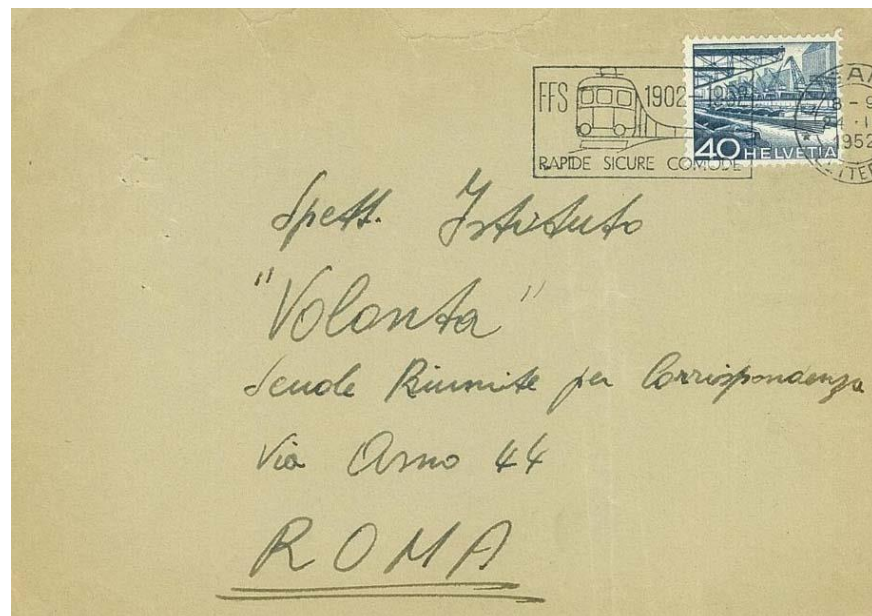 FFS 1902-1952
RAPIDE SICURE COMODE
40 HELVETIA
8-9
1952
Spett. Istituto
"Volonta"
Scuole Riunite per Corrispondenza
Via Arno 44
ROMA